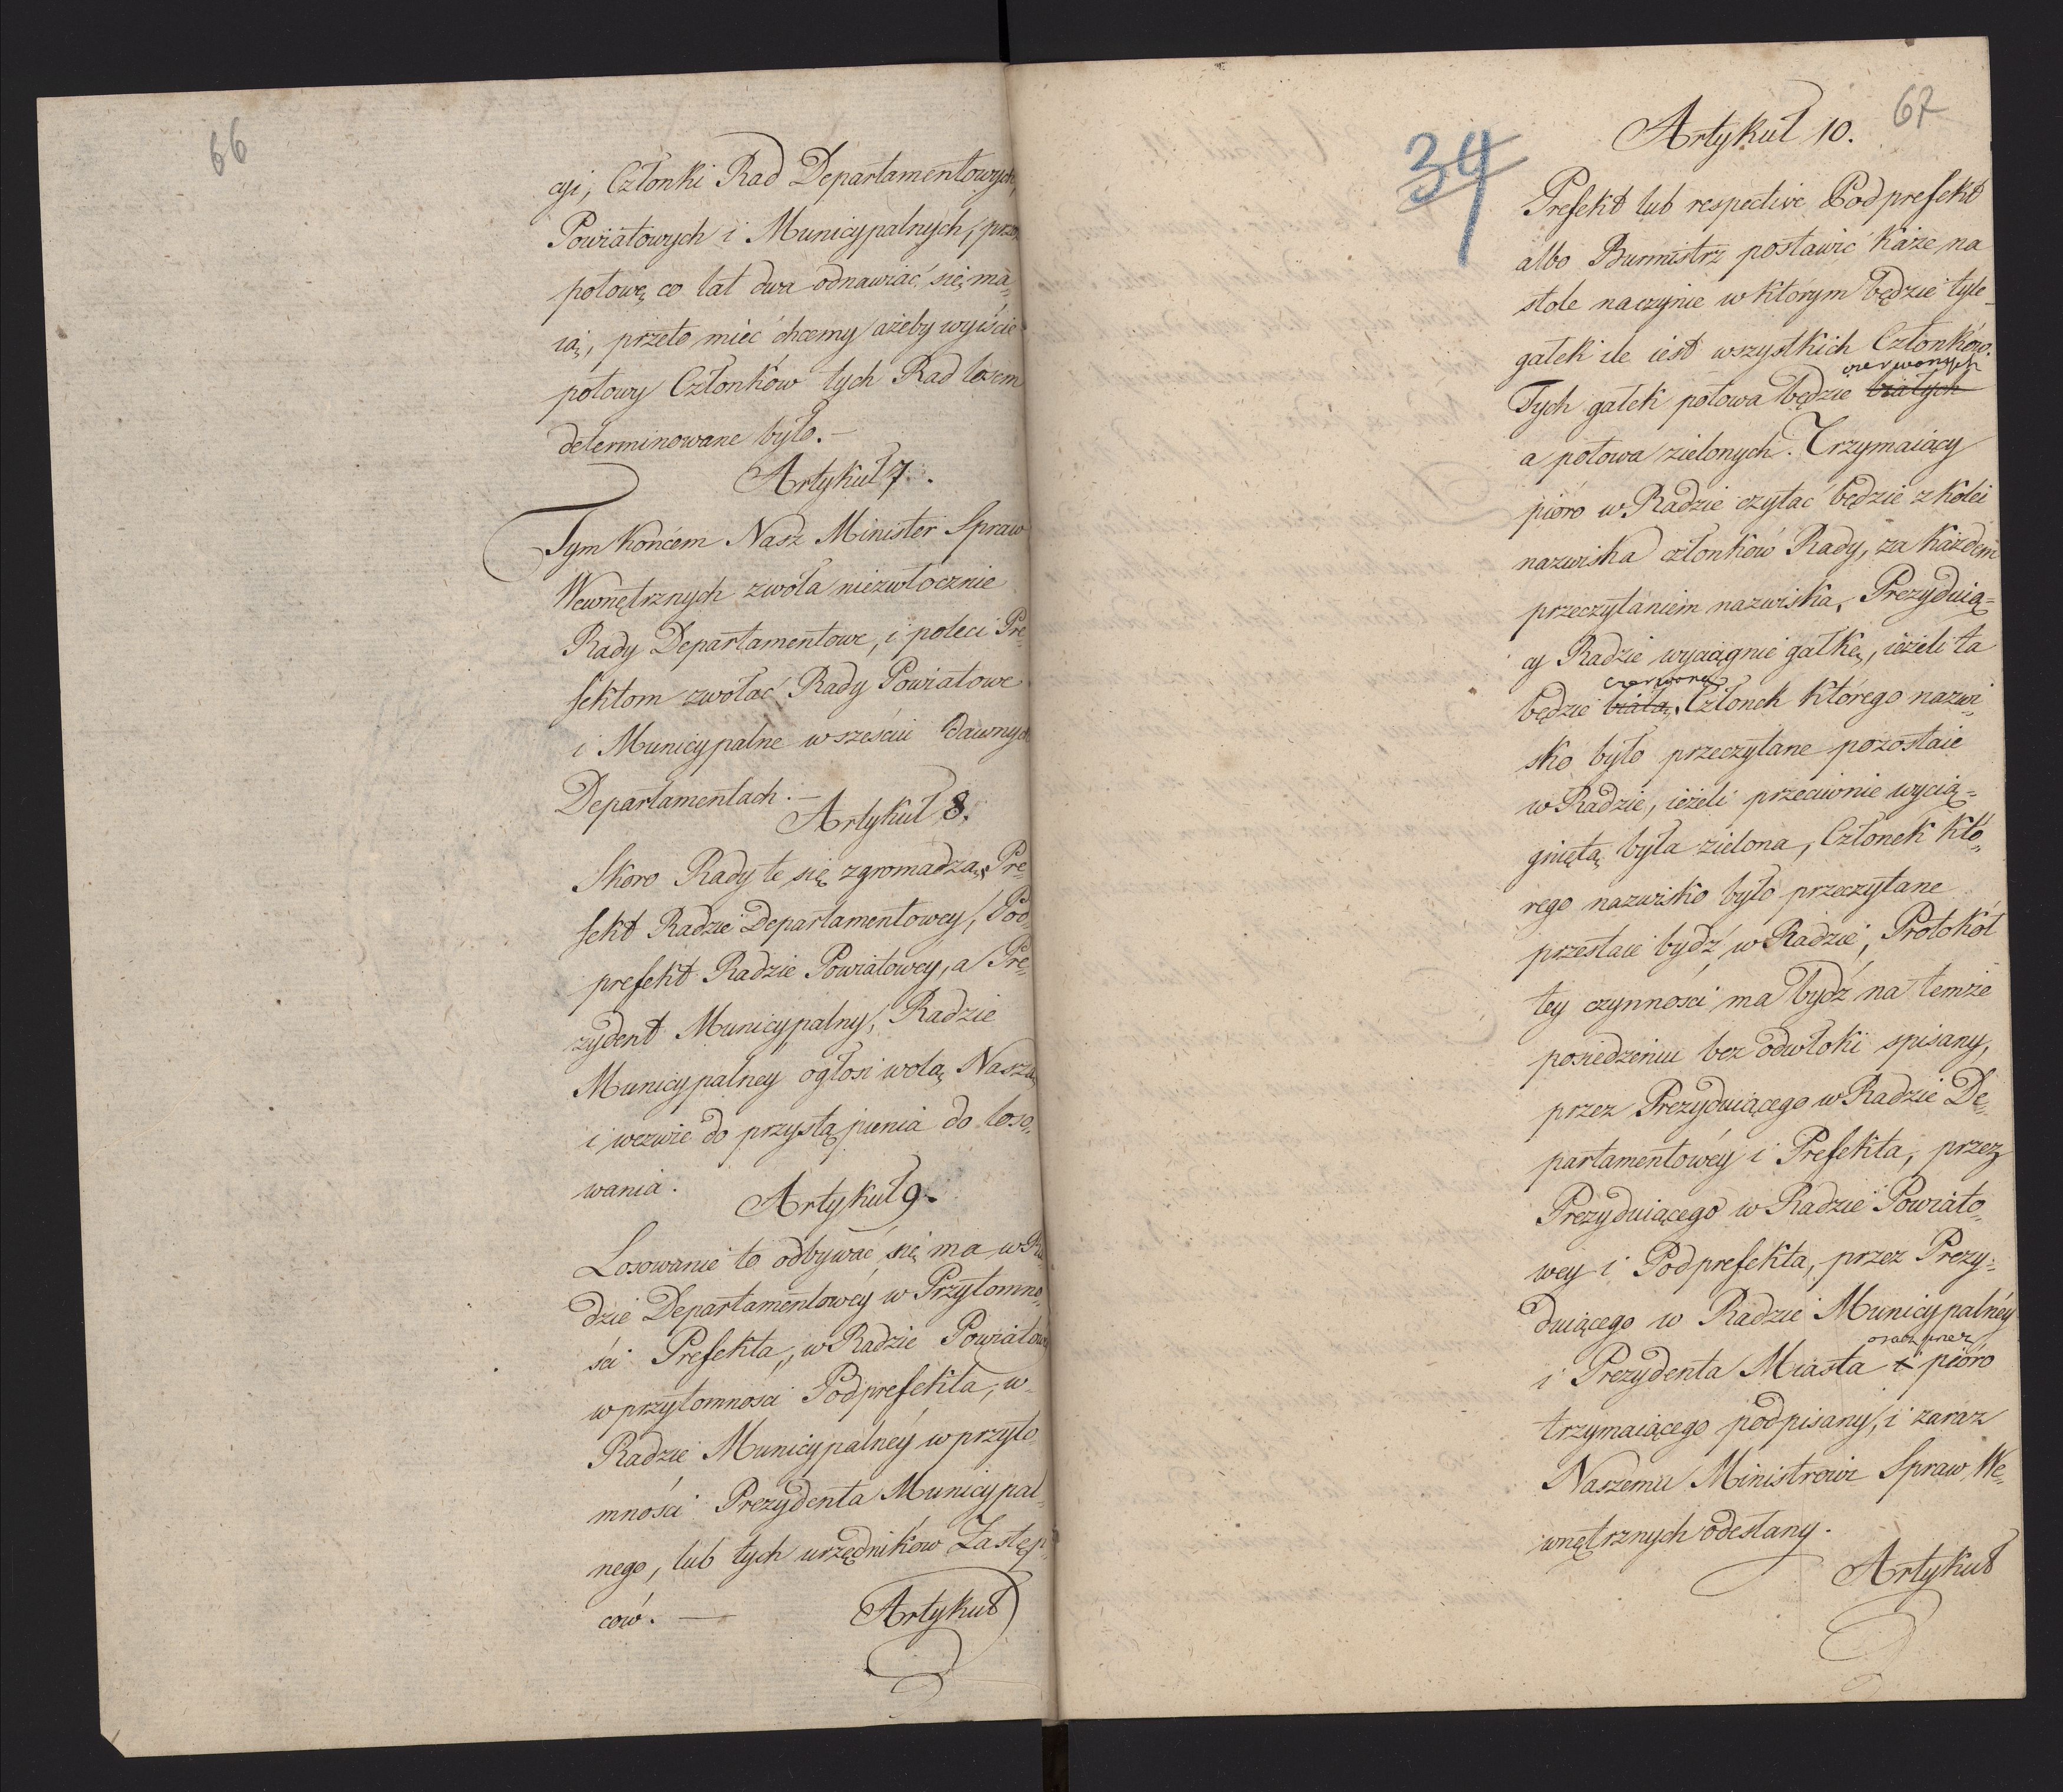 66
cyi, Członki Rad Departamentowych,
Powiatowych i Municypalnych, przez
połowę co lat dwa odnawiać się ma=
ią, przeto mieć chcemy ażeby wyiście
połowy Członków tych Rad losem
determinowane było.—
Artykuł 7.
Tym końcem Nasz Minister Spraw
Wewnętrznych zwoła niezwłocznie
Rady Departamentowe, i poleci Pre=
fektom zwołać Rady Powiatowe
i Municypalne w sześciu dawnych
Departamentach.—
Artykuł 8.
Skoro Rady te się zgromadzą, Pre=
fekt Radzie Departamentowey, Pod=
prefekt Radzie Powiatowey, a Pre=
zydent Municypalny, Radzie
Municypalney ogłosi wolą Naszą
i wezwie do przystąpienia do loso=
wania.
Artykuł 9.
Losowanie to odbywać się ma w Ra=
dzie Departamentowéy w Przytomno=
ści Prefekta, w Radzie Powiatowey
w przytomności Podprefekta, w
Radzie Municypalnéy w przyto=
mności Prezydenta Municypal=
nego, lub tych urzędników Zastęp=
ców. —
Artykuł
67
34
Artykuł 10.
Prefekt lub respective Podprefekt
albo Burmistrz postawić każe na
stole naczynie w którym będzie tyle
gałek ile iest wszystkich Członków.
czerwonych
Tych gałek połowa będzie białych
a połowa zielonych. Trzymaiący
pióro w Radzie czytać będzie z kolei
nazwiska członków Rady, za każdem
przeczytaniem nazwiska, Prezyduią=
cy Radzie wyciągnie gałkę, ieżeli ta
czerwoną
będzie białą, Członek którego nazwi=
sko było przeczytane pozostaie
w Radzie, ieżeli przeciwnie wycią=
gniętą była zielona, Członek któ=
rego nazwisko było przeczytane
przestaie bydź w Radzie, Protokół
tey czynności ma bydź na temże
posiedzeniu bez odwłoki spisany,
przez Prezyduiącego w Radzie De=
partamentowéy i Prefekta, przez
Prezyduiącego w Radzie Powiato=
wey i Podprefekta, przez Prezy=
duiącego w Radzie Municypalnéy
oraz przez
i Prezydenta Miasta i pióro
trzymaiącego podpisany, i zaraz
Naszemu Ministrowi Spraw We=
wnętrznych odesłany.
Artykuł